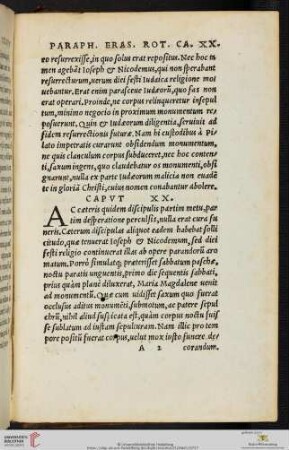 PARAPH. ERAS. ROT. CA. XX.
eo resurrexisse, in quo solus erat repositus. Nec hoc ta
men agebāt Ioseph & Nicodemus, qui non sperabant
resurrecturum, uerum diei festi Iudaica religione mo
uebantur. Erat enim parasceue Iudæorū, quo fas non
erat operari. Proinde, ne corpus relinqueretur insepul
tum, minimo negocio in proximum monumentum re
posuerunt. Quin & Iudæorum diligentia, seruiuit ad
fidem resurrectionis futuræ. Nam hi custodibus à Pi
lato impetratis curarunt obsidendum monumentum,
ne quis clanculum corpus subduceret, nec hoc conten
ti, saxum ingens, quo claudebatur os monumenti, obsi
gnarunt, nulla ex parte Iudæorum malicia non euadē
te in gloriā Christi, cuius nomen conabantur abolere.
CAPVT XX.
AC cæteris quidem discipulis partim metu, par
tim desperatione perculsis, nulla erat cura fu
neris. Cæterum discipulas aliquot eadem habebat solli
citudo, quæ tenuerat Ioseph & Nicodemum, sed diei
festi religio continuerat illas ab opere parandorū aro
matum. Porrò simulatq; præterisset sabbatum paschæ,
noctu paratis unguentis, primo die sequentis sabbati,
prius quàm planè diluxerat, Maria Magdalene uenit
ad monumentū. Quæ cum uidisset saxum quo fuerat
occlusus aditus monumēti, submotum, ac patere sepul
chrū, nihil aliud suspicata est, quàm corpus noctu suis
se sublatum ad iustam sepulturam. Nam illic pro tem
pore positū fuerat corpus, uelut mox iusto funere de=
A 2 corandum.